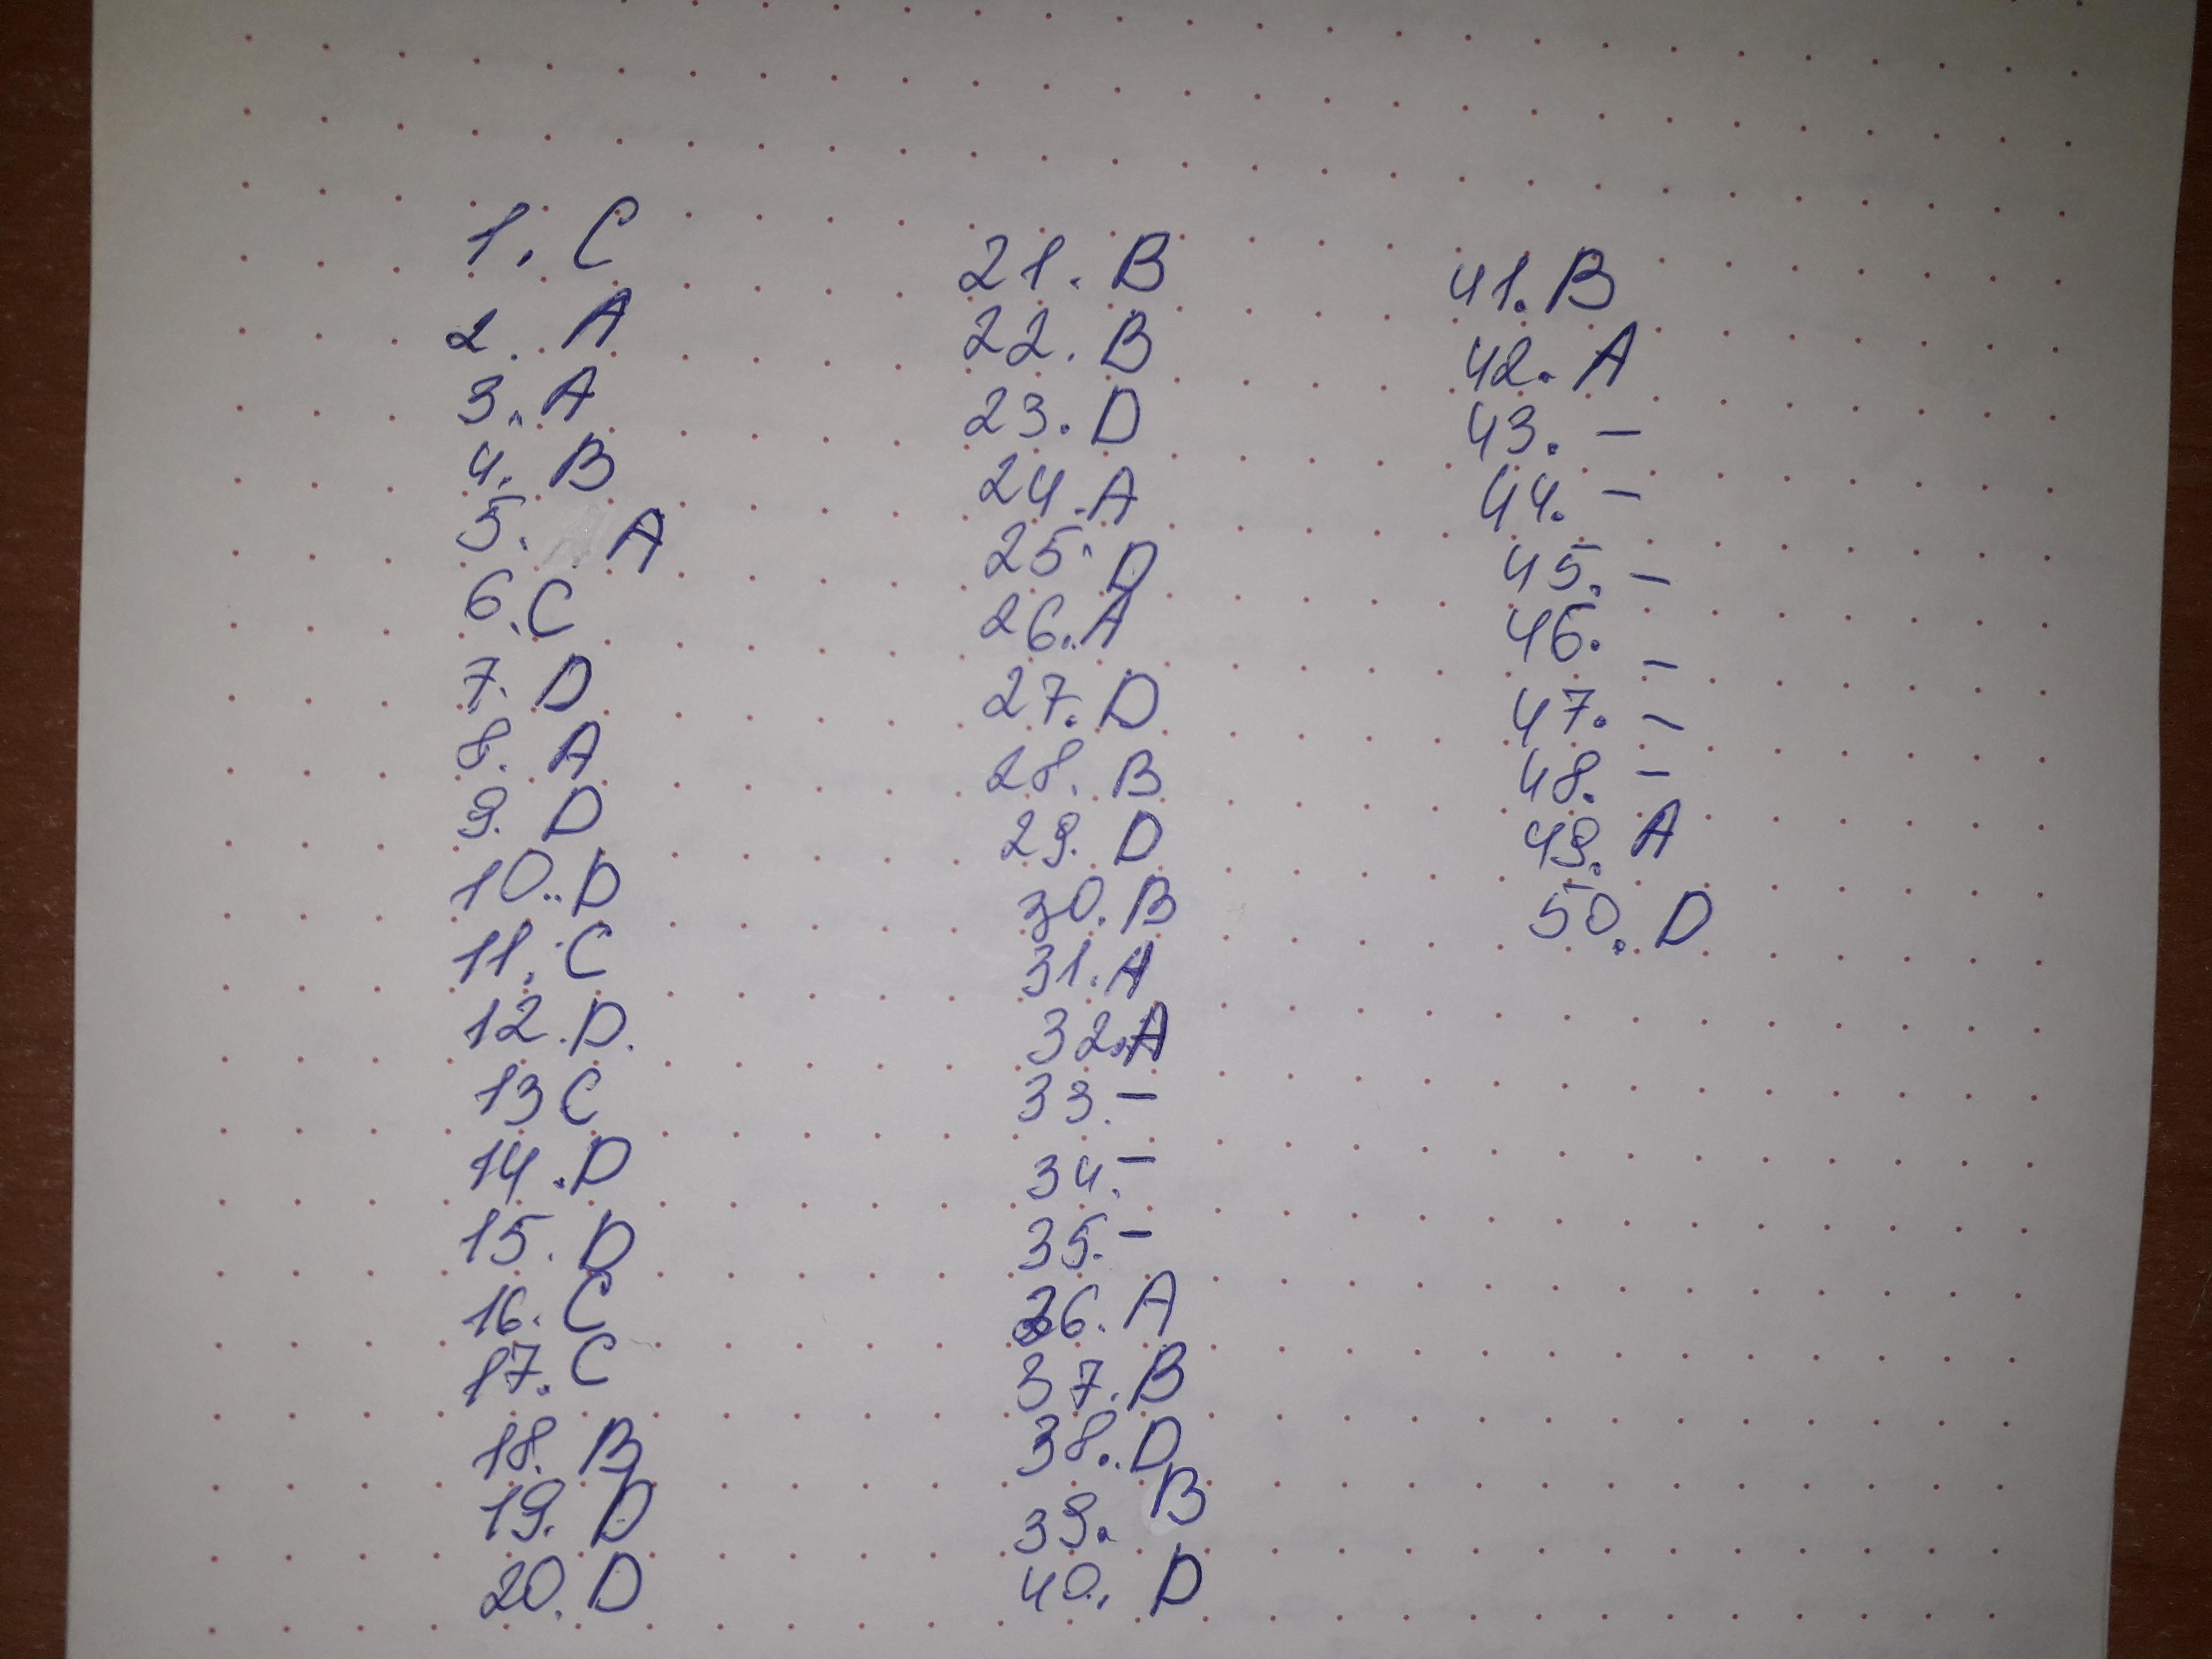 1. C
2. A
3. A
4. B
5. A
6. C
7. D
8. A
9. D
10. D
11. C
12. D.
13 C
14. D
15. D
16. C
17. C
18. B
19. D
20. D
21. B
22. B
23. D
24. A
25. D
26. A
27. D
28. B
29. D
30. B
31. A
32. A
33. –
34. –
35. –
36. A
37. B
38. D
39. B
40. D
41. B
42. A
43. –
44. –
45. –
46. –
47. –
48. –
49. A
50. D